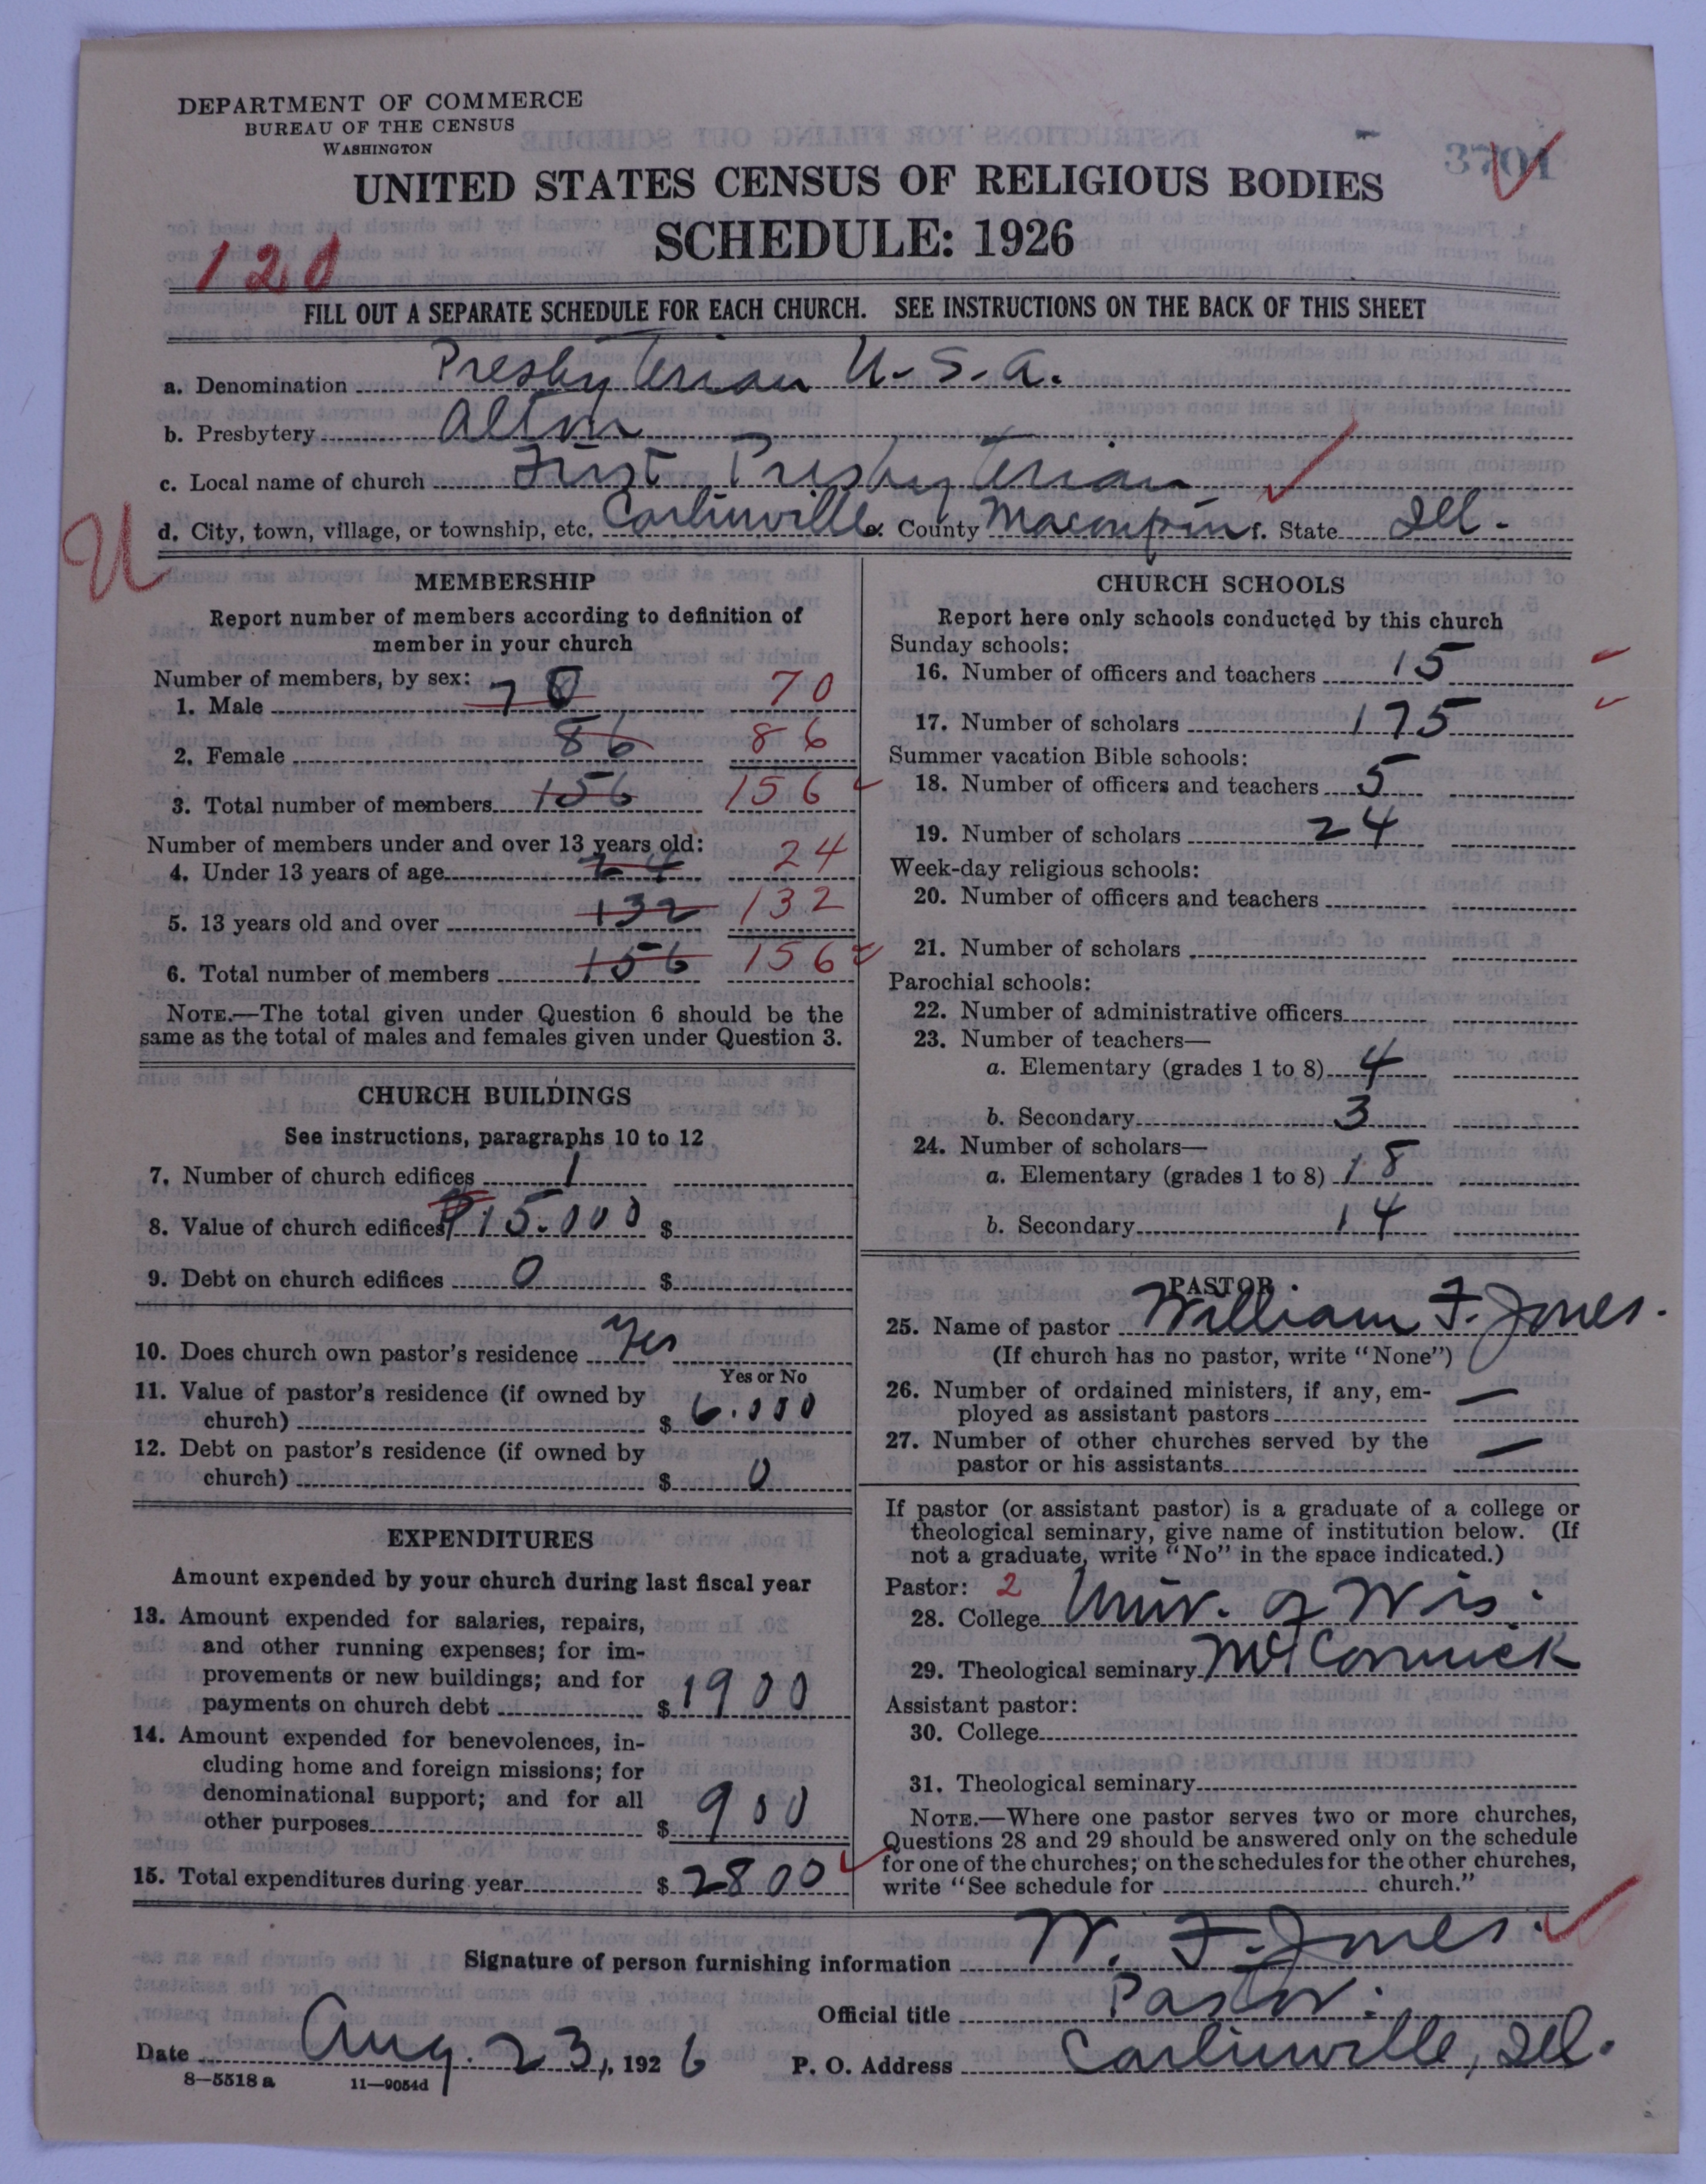 DEPARTMENT OF COMMERCE
BUREAU OF THE CENSUS
WASHINGTON
3701
UNITED STATES CENSUS OF RELIGIOUS BODIES
SCHEDULE: 1926
120
FILL OUT A SEPARATE SCHEDULE FOR EACH CHURCH. SEE INSTRUCTIONS ON THE BACK OF THIS SHEET
a. Denomination Presbyterian U.S.A.
b. Presbytery Alton
c. Local name of church First Presbyterian
d. City, town, village, or township, etc. Carlinville e. County Macoupin f. State Ill.
U
MEMBERSHIP
Report number of members according to definition of
member in your church
Number of members, by sex:
1. Male 70 70
2. Female 86 86
3. Total number of members 156 156
Number of members under and over 13 years old:
4. Under 13 years of age 24 24
5. 13 years old and over 132 132
6. Total number of members 156 156
NOTE.—The total given under Question 6 should be the
same as the total of males and females given under Question 3.
CHURCH BUILDINGS
See instructions, paragraphs 10 to 12
7. Number of church edifices 1
8. Value of church edifices $15.000 $
9. Debt on church edifices 0 $
10. Does church own pastor's residence Yes
Yes or No
11. Value of pastor's residence (if owned by
church) $ 6.000
12. Debt on pastor's residence (if owned by
church) $ 0
EXPENDITURES
Amount expended by your church during last fiscal year
13. Amount expended for salaries, repairs,
and other running expenses; for im-
provements or new buildings; and for
payments on church debt $ 1900
14. Amount expended for benevolences, in-
cluding home and foreign missions; for
denominational support; and for all
other purposes $ 900
15. Total expenditures during year $ 2800
CHURCH SCHOOLS
Report here only schools conducted by this church
Sunday schools:
16. Number of officers and teachers 15
17. Number of scholars 175
Summer vacation Bible schools:
18. Number of officers and teachers 5
19. Number of scholars 24
Week-day religious schools:
20. Number of officers and teachers
21. Number of scholars
Parochial schools:
22. Number of administrative officers
23. Number of teachers—
a. Elementary (grades 1 to 8) 4
b. Secondary 3
24. Number of scholars—
a. Elementary (grades 1 to 8) 18
b. Secondary 14
PASTOR
25. Name of pastor William F. Jones.
(If church has no pastor, write "None")
26. Number of ordained ministers, if any, em-
ployed as assistant pastors —
27. Number of other churches served by the
pastor or his assistants —
If pastor (or assistant pastor) is a graduate of a college or
theological seminary, give name of institution below. (If
not a graduate, write "No" in the space indicated.)
Pastor: 2
28. College Univ. of Wis.
29. Theological seminary McCormick
Assistant pastor:
30. College
31. Theological seminary
NOTE.—Where one pastor serves two or more churches,
Questions 28 and 29 should be answered only on the schedule
for one of the churches; on the schedules for the other churches,
write "See schedule for church."
Signature of person furnishing information W. F. Jones.
Official title Pastor.
Date Aug. 23, 1926 P. O. Address Carlinville, Ill.
8—5518 a 11—9054d